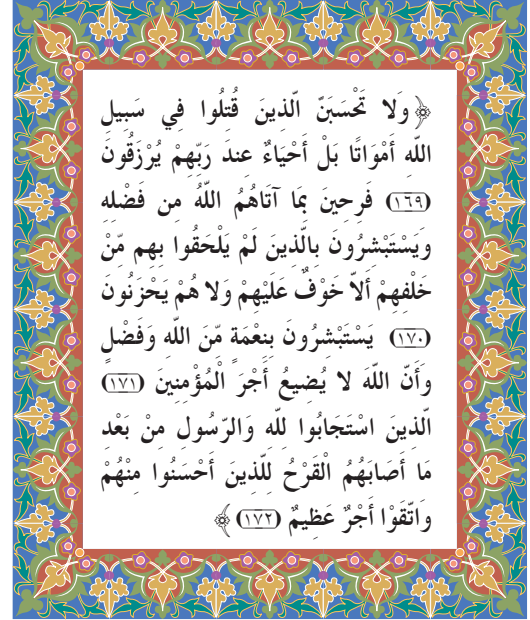 ﴿ وَلا تَحْسَبَنّ الّذينَ قُتلُوا في سَبيل
اللّه أَمْوَاتًا بَلْ أَحْيَاءٌ عندَ رَبّهمْ يُرْزَقُونَ
(١٦٩) فَرحينَ بمَا آتَاهُمُ اللّهُ من فَضْله
ويَسْتَبْشرُونَ بالّذينَ لَمْ يَلْحَقُوا بهم مّنْ
خَلْفهمْ أَلاّ خَوْفٌ عَلَيْهمْ ولا هُمْ يَحْزَنُونَ
(١٧٠) يَسْتَبْشرُونَ بنعْمَة مّنَ اللّه وفَضْل
وأَنّ اللّهَ لا يُضيعُ أَجْرَ الْمُؤْمنينَ (١٧١)
الّذينَ اسْتَجَابُوا للّه وَالرّسُول منْ بَعْد
مَا أَصَابَهُمُ الْقَرْحُ للّذينَ أَحْسَنُوا منْهُمْ
وَاتّقَوْا أَجْرٌ عَظيمٌ (١٧٢) ﴾